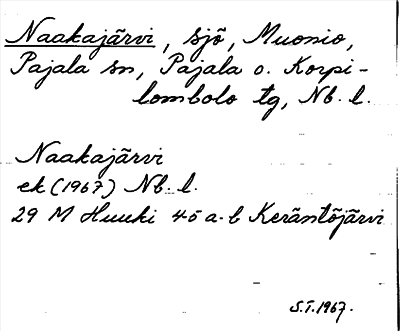 Naakajärvi, sjö, Muonio,
Pajala sn, Pajala o. Korpi-
lombolo tg, Nb. l.
Naakajärvi
ek (1967) Nb. l.
29 M Huuki 45 a-b Keräntöjärvi
S.T. 1967.